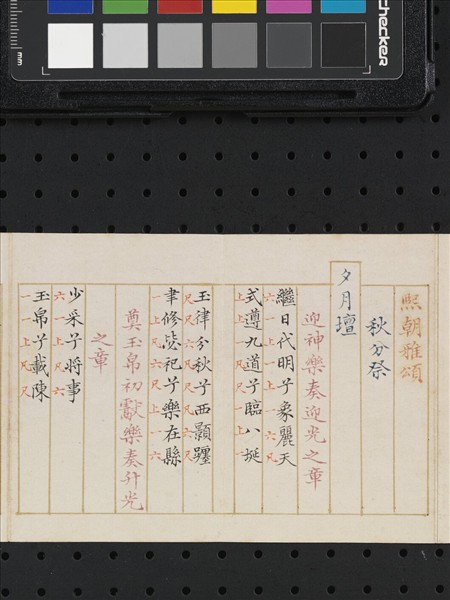 checker
mm
熙朝雅頌
秋分祭
夕月壇
迎神樂奏迎光之章
繼日代明兮象麗天
式遵九道兮臨八埏
玉律分秋兮西顥躔
聿修毖祀兮樂在縣
奠玉帛初獻樂奏升光
之章
少采兮將事
玉帛兮載陳